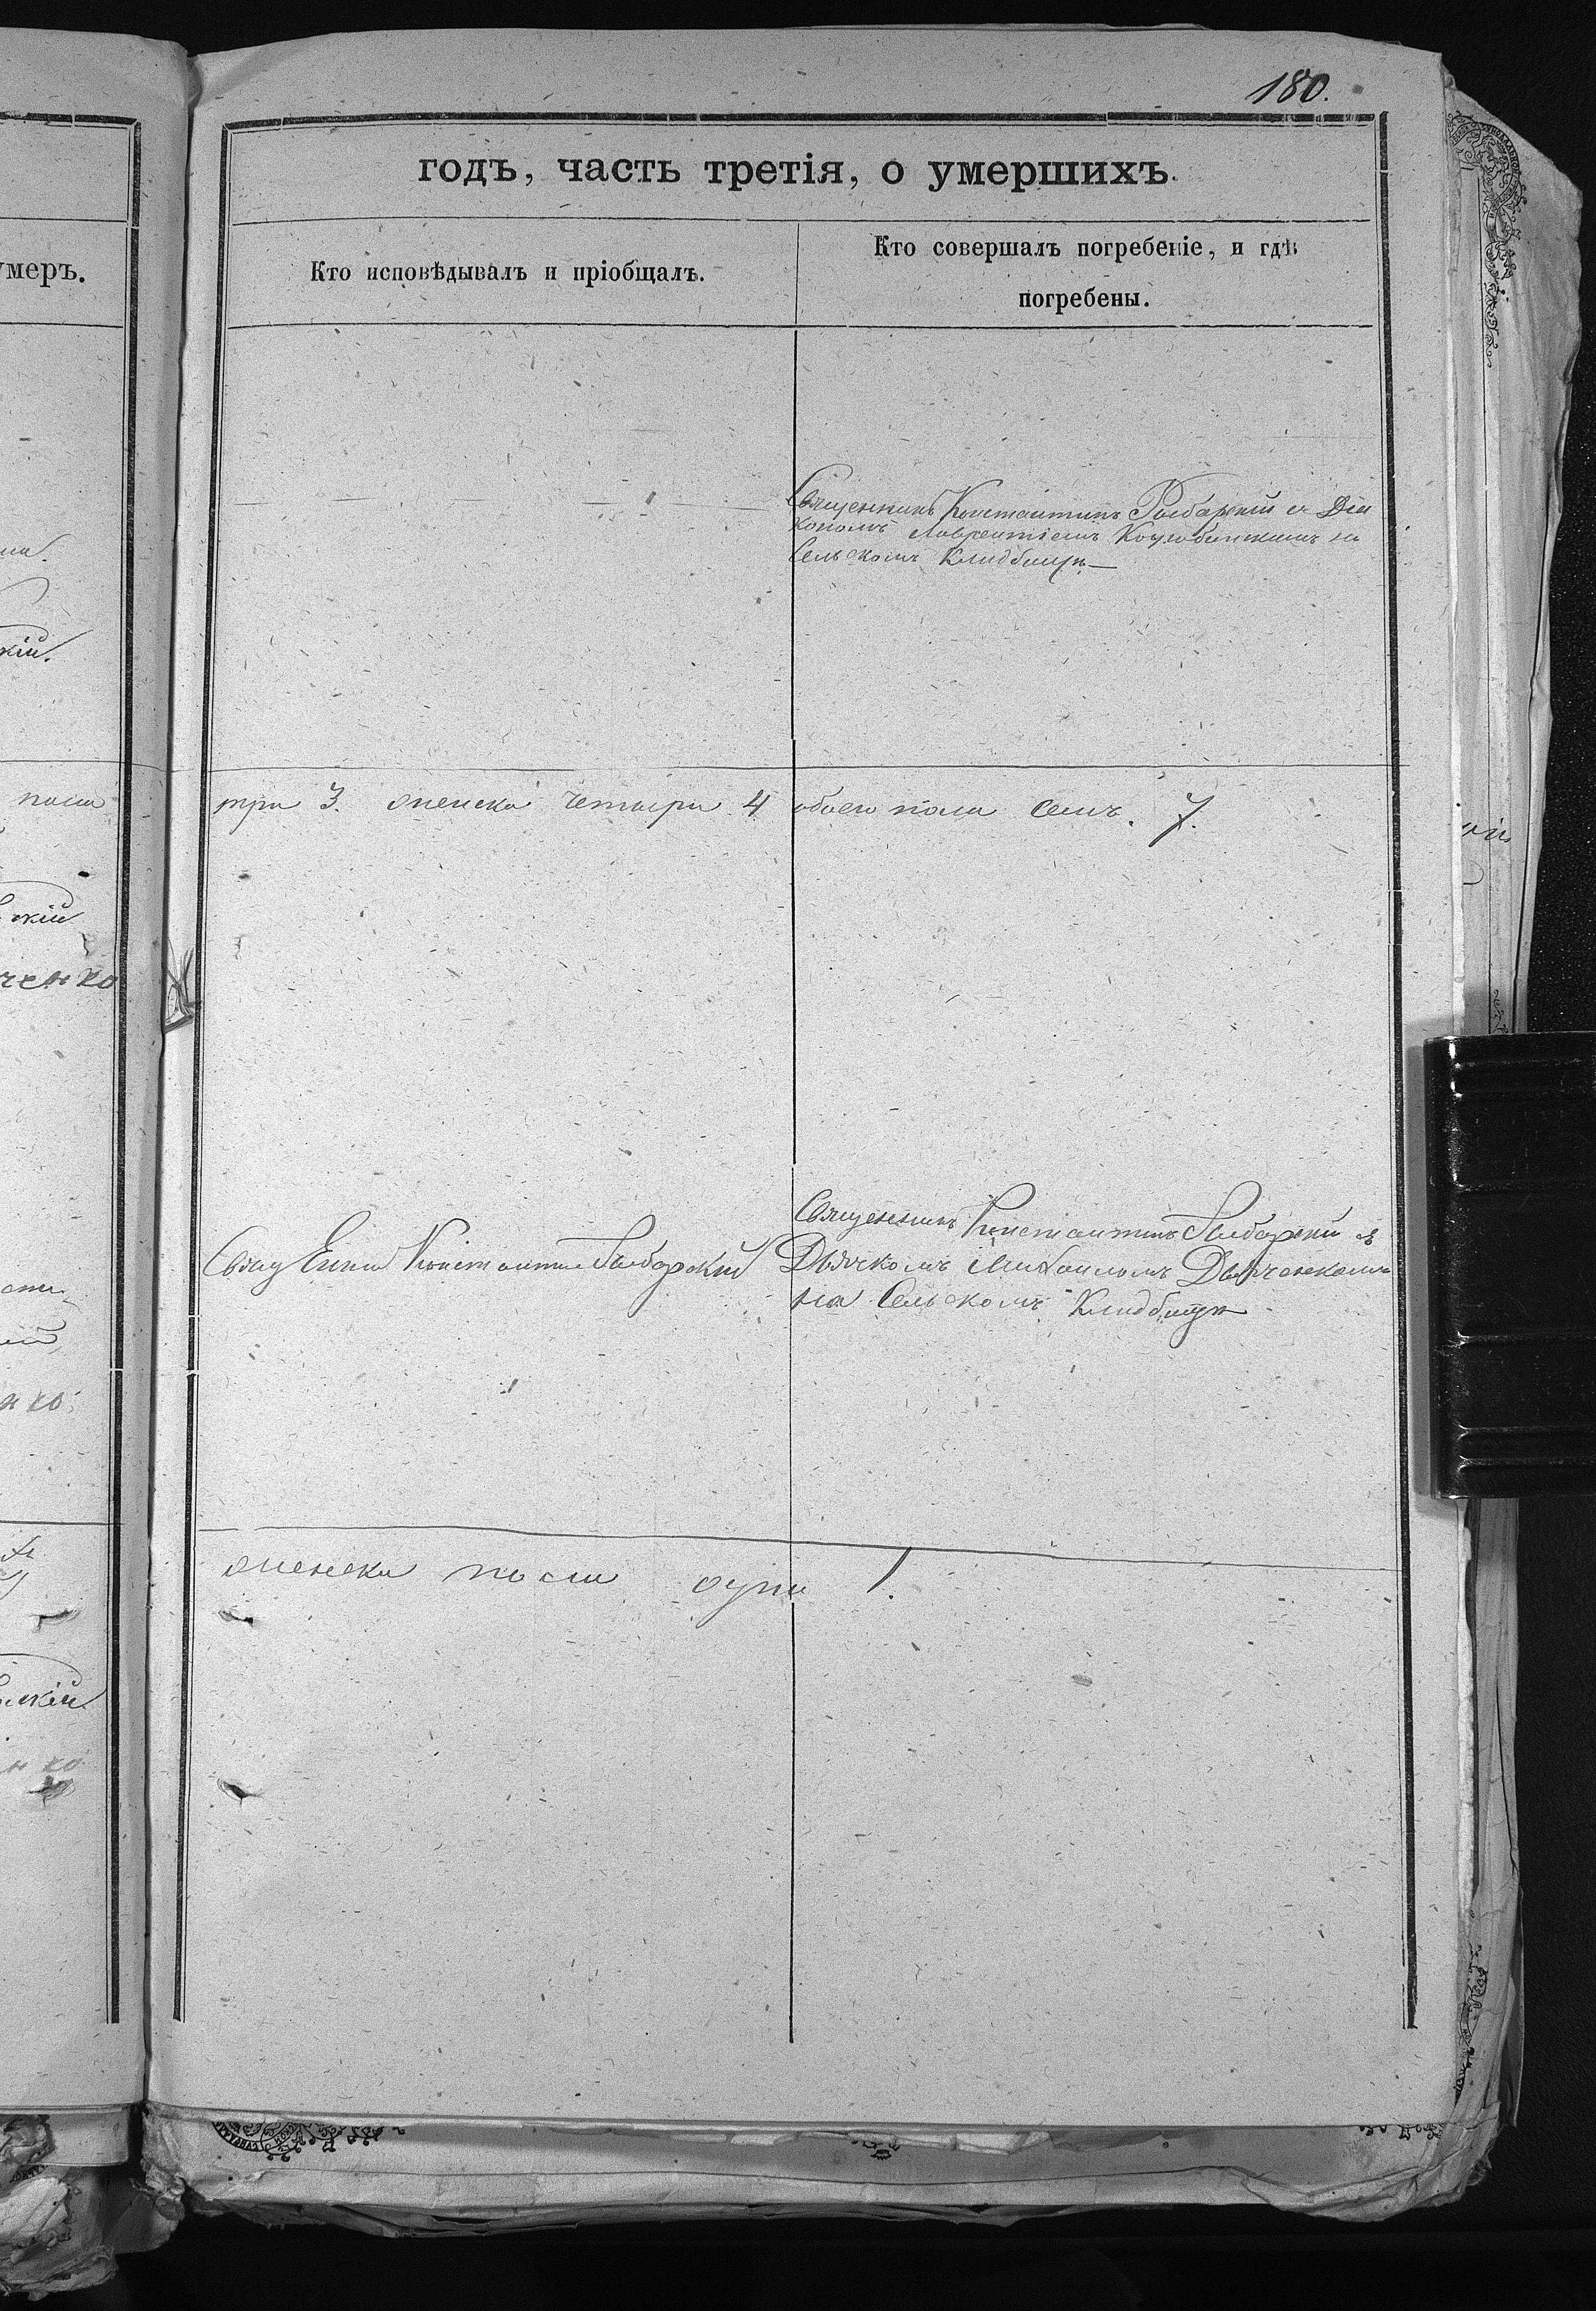 180.
годъ, часть третія, о умершихъ.
умеръ.
Кто исповѣдывалъ и пріобщалъ.
Кто совершалъ погребеніе, и гдѣ
погребены.
Священникъ Константинъ Рыбарскій съ Діа
кономъ Лаврентіемъ на
Сельскомъ Кладбищѣ
три 3. женска четыри 4 обоего пола семь. 7.
Священникъ Константинъ Рыбарскій съ
Дьячкомъ Михаиломъ Дьяченкомъ
на Сельскомъ Кладбищѣ
Свящ Константинъ Рыбарскій
женска пола душа 1.
пола
скій
ченко
нко
скій
нко